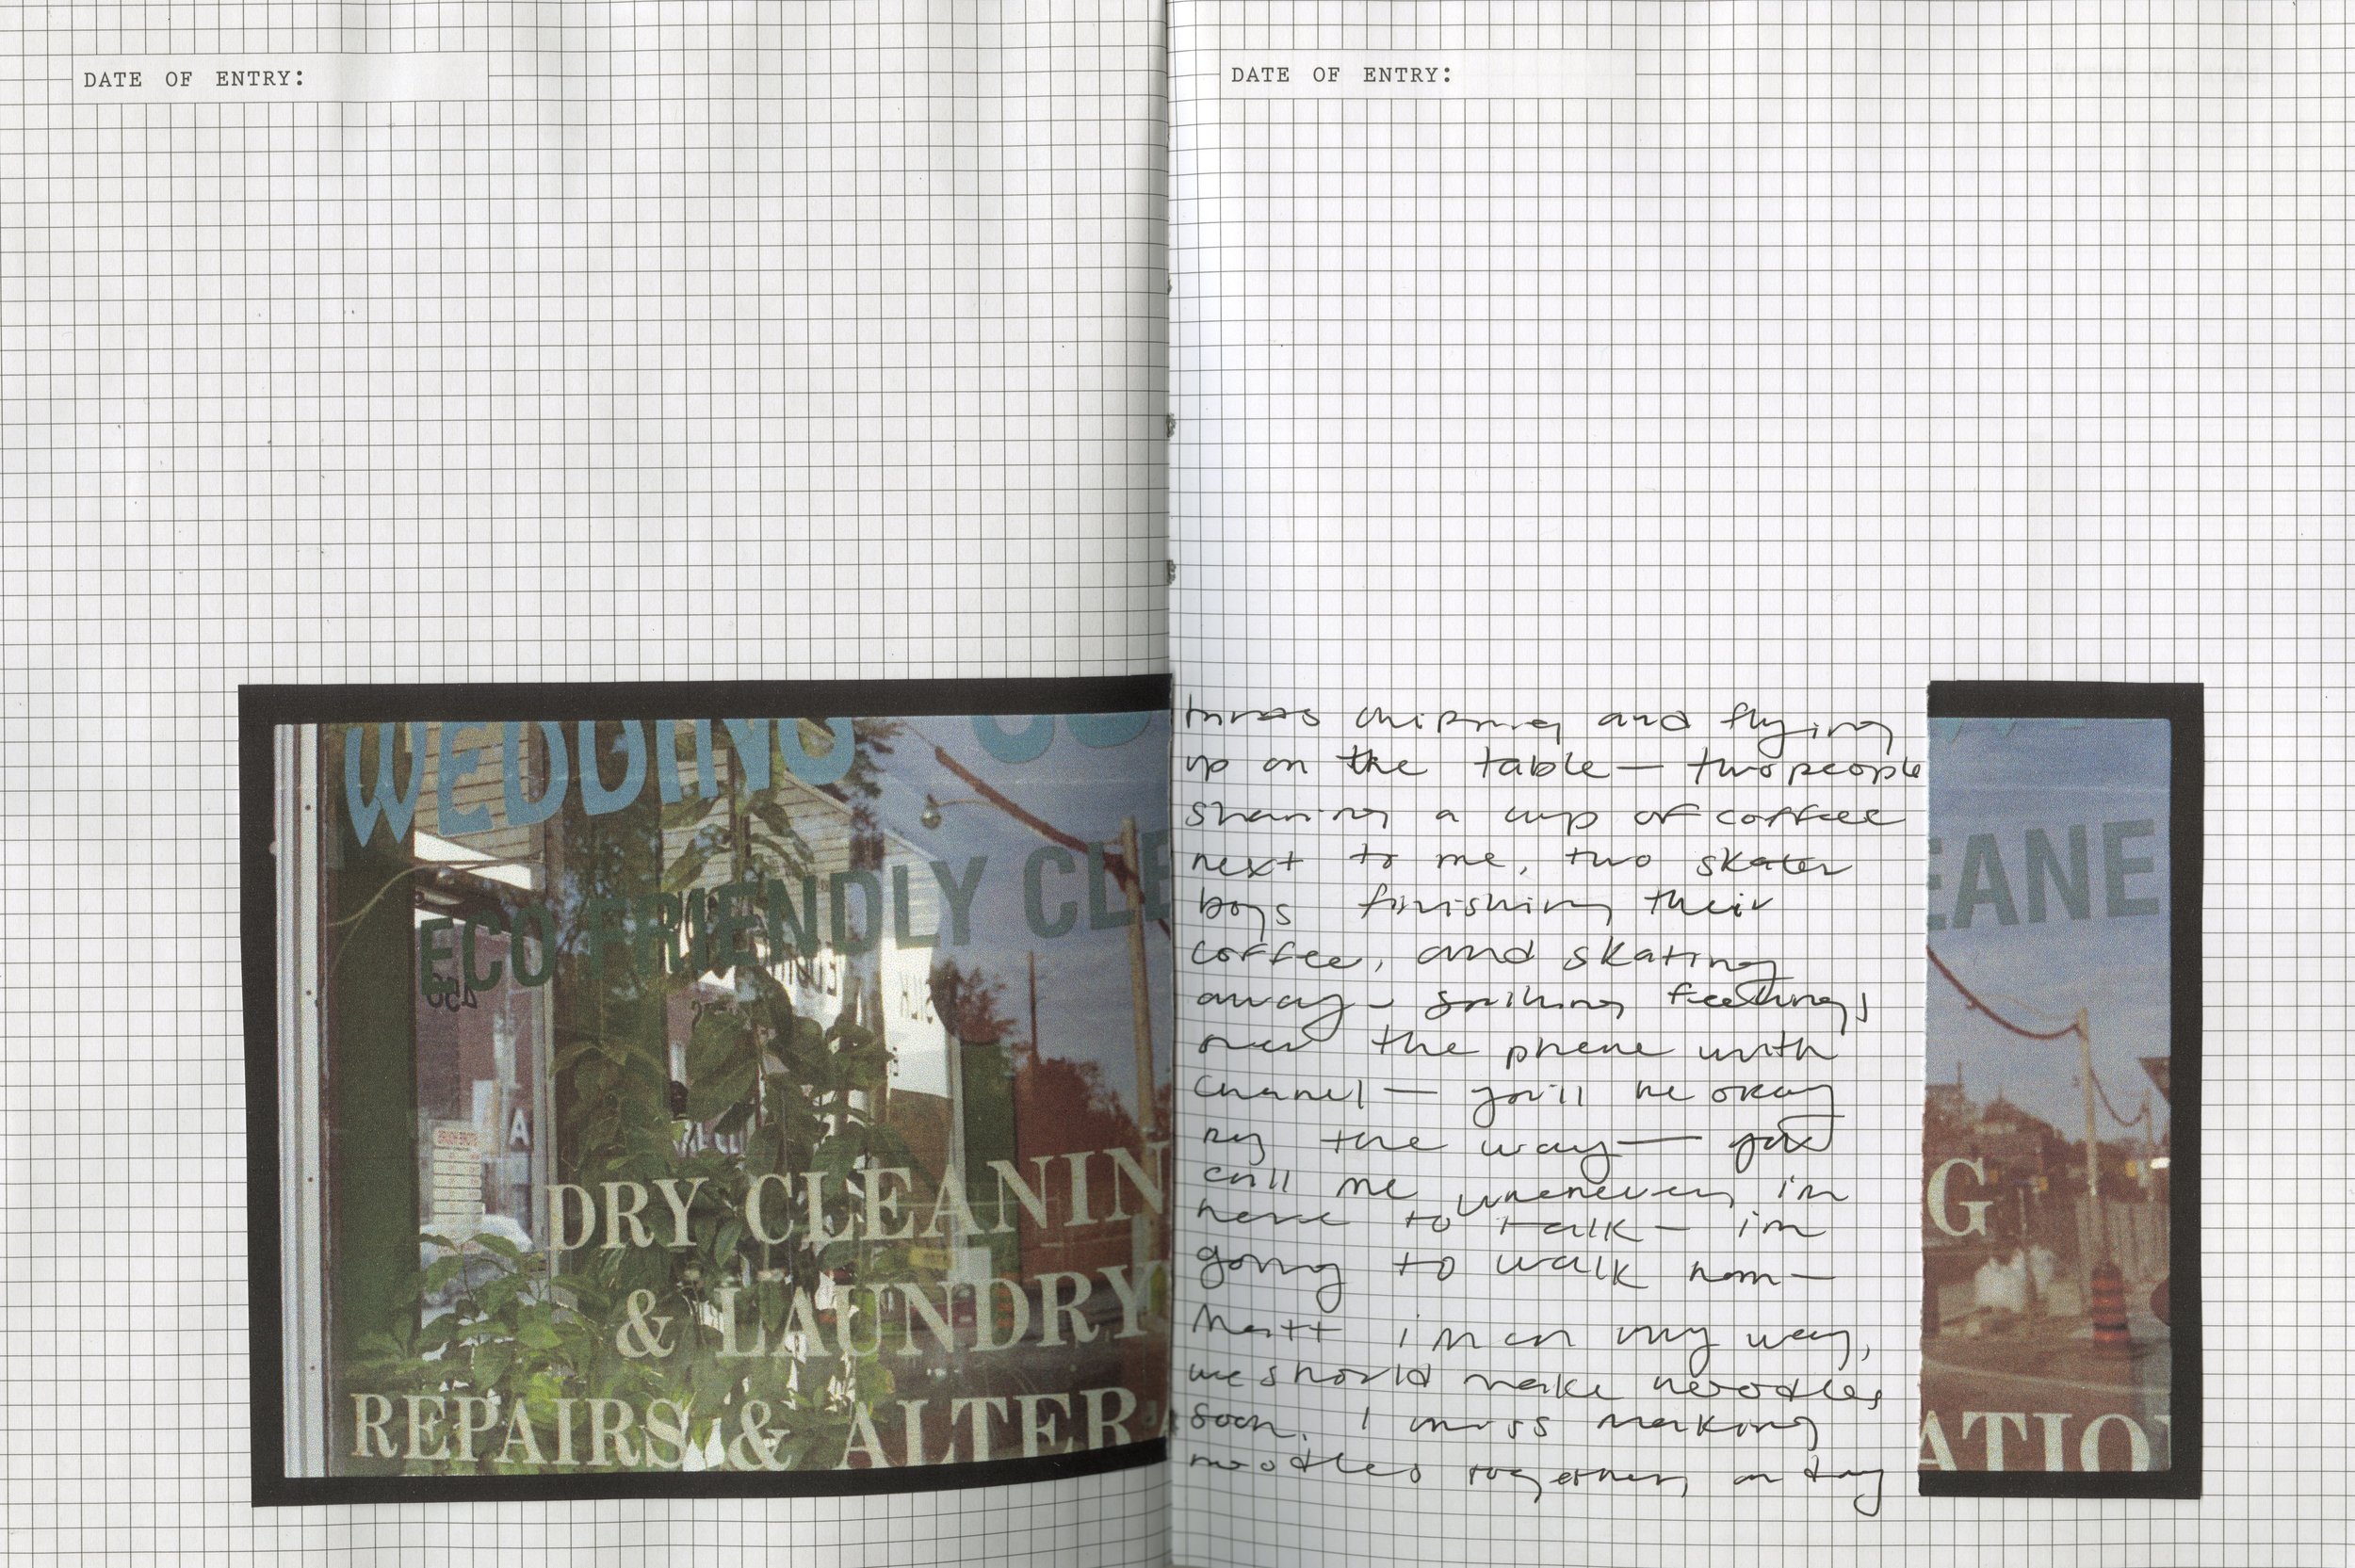 DATE OF ENTRY:
DATE OF ENTRY:
WEDDING
ECO FRIENDLY CLE
450
A
DRY CLEANIN
& LAUNDRY
REPAIRS & ALTER
chirping and flying
up on the table — two people
sharing a cup of coffee
next to me, two skater
boys finishing their
coffee, and skating
away - spilling feelings
over the phone with
chanel — you'll be okay
by the way — you
call me whenever, i'm
here to talk — i'm
going to walk hom—
Matt i'm on my way,
we should make noodles
soon. I miss making
noodles together,
EANE
G
ATIO